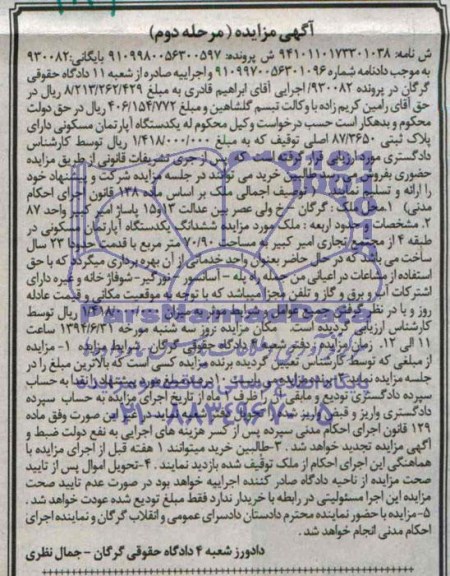 آگهی مزایده (مرحله دوم)
ش نامه: ۹۴۱۰۱۱۰۱۷۳۳۰۱۰۳۸ ش پرونده: ۹۱۰۹۹۸۰۰۵۶۳۰۰۵۹۷ بایگانی: ۹۳۰۰۸۲
به موجب دادنامه شماره ۹۱۰۹۹۷۰۰۵۶۳۰۱۰۹۶ و اجراییه صادره از شعبه ۱۱ دادگاه حقوقی
گرگان در پرونده ۹۳۰۰۸۲/ اجرایی آقای ابراهیم قادری به مبلغ ۸/۲۱۳/۲۶۲/۴۲۹ ریال در
حق آقای رامین کریم زاده با وکالت تبسم گلشاهین و مبلغ ۴۰۶/۱۵۴/۷۷۲ ریال در حق دولت
محکوم و بدهکار است حسب درخواست وکیل محکوم له یکدستگاه آپارتمان مسکونی دارای
پلاک ثبتی ۸۷/۳۶۵۰ اصلی توقیف که به مبلغ ۱/۴۱۸۰۰۰/۰۰۰ ریال توسط کارشناس
دادگستری مورد ارزیابی قرار گرفته است که پس از جری تشریفات قانونی از طریق مزایده
حضوری بفروش می رسد طالبین خرید می توانند در جلسه مزایده شرکت و پیشنهاد خود
را ارائه و تسلیم نمایند. توصیف اجمالی ملک بر اساس ماده ۱۳۸ قانون اجرای احکام
مدنی) ۱.محل ملک: گرگان خ ولی عصر بین عدالت ۱۳و۱۵ پاساژ امیر کبیر واحد ۸۷
۲. مشخصات و حدود اربعه: ملک مورد مزایده ششدانگ یکدستگاه آپارتمان مسکونی در
طبقه ۴ از مجتمع تجاری امیر کبیر به مساحت ۷۰/۹۰ متر مربع با قدمت حدودا ۲۳ سال
ساخت می باشد که در حال حاضر بعنوان واحد خدماتی از آن بهره برداری میگردد که با حق
استفاده از مشاعات در اعیانی من جمله راه پله - آسانسور - نورگیر- شوفاژ خانه و غیره دارای
اشتراکات آب و برق و گاز و تلفن مجزا میباشد که با توجه به موقعیت مکانی و قیمت عادله
روز و با در نظر گرفتن جمیع عوامل و شرایط موثر به میزان ریال توسط
کارشناس ارزیابی گردیده است. مکان مزایده :روز سه شنبه مورخه ۱۳۹۴/۶/۳۱ ساعت
۱۱ الی ۱۲. زمان مزایده : دفتر شعبه ۴ دادگاه حقوقی گرگان . شرایط مزایده ۱- مزایده
از مبلغی که توسط کارشناس تعیین گردیده برنده مزایده کسی است که بالاترین مبلغ را در
جلسه مزایده نماید. ۲- برنده مزایده می بایست ۱۰ درصد نقدا به حساب
سپرده دادگستری تودیع و مابقی آن را ظرف ۱ ماه از تاریخ اجرای مزایده به حساب سپرده
دادگستری واریز و قبض واریز در غیر این صورت وفق ماده
۱۲۹ قانون اجرای احکام مدنی سپرده پس از کسر هزینه های اجرایی به نفع دولت ضبط و
آگهی مزایده تجدید خواهد شد. ۳-طالبین خرید میتوانند ۱ هفته قبل از اجرای مزایده با
هماهنگی این اجرای احکام از ملک توقیف شده بازدید نمایند. ۴-تحویل اموال پس از تایید
صحت مزایده از ناحیه دادگاه صادر کننده اجراییه خواهد بود در صورت عدم تایید صحت
مزایده این اجرا مسئولیتی در رابطه با خریدار ندارد فقط مبلغ تودیع شده عودت خواهد شد.
۵-مزایده با حضور نماینده محترم دادستان دادسرای عمومی و انقلاب گرگان و نماینده اجرای
احکام مدنی انجام خواهد شد.
دادورز شعبه ۴ دادگاه حقوقی گرگان - جمال نظری
ParsNamadData
۰۲۱-۸۸۳۴۹۶۷۰-۵